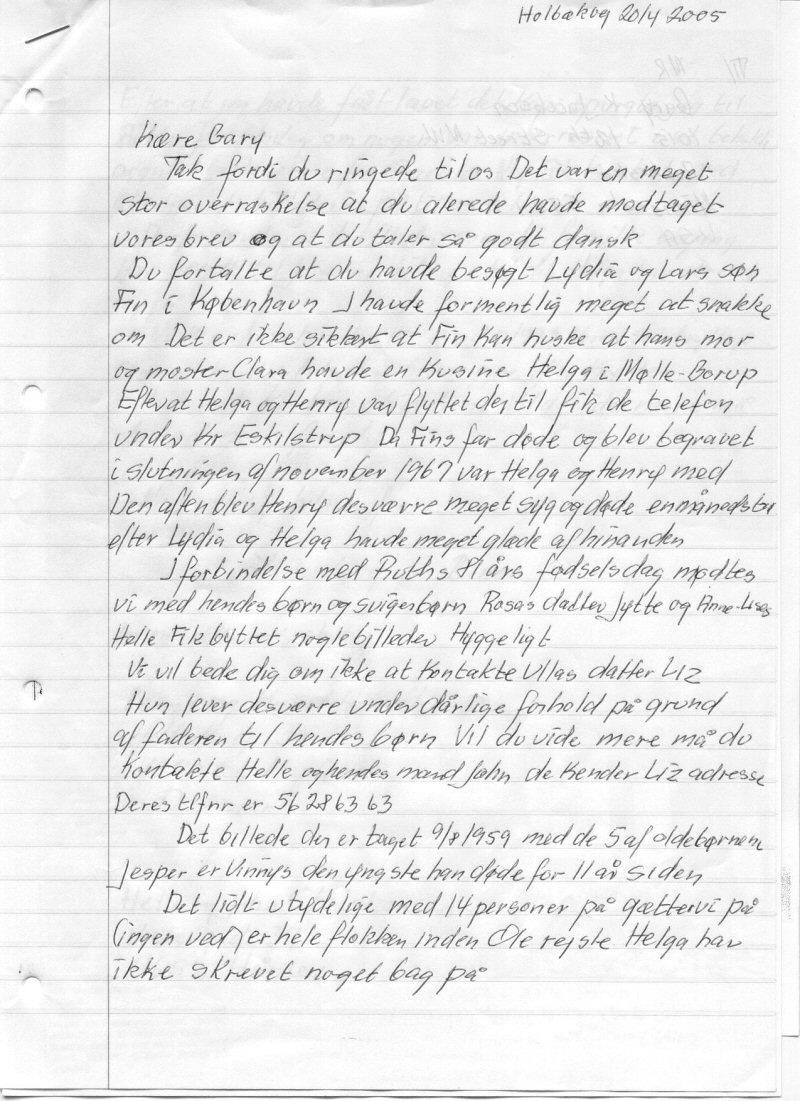 20/4 2005
Kære Gary
Tak fordi du ringede til os Det var en meget
stor overraskelse at du alerede havde modtaget
vores brev og at du taler så godt dansk
Du fortalte at du havde besøgt Lydia og Lars søn
Fin i København I havde formentlig meget at snakke
om Det er ikke sikkert at Fin kan huske at hans mor
og moster Clara havde en kusine Helga i Mølle-Borup
Efter at Helga og Henry var flyttet der til fik de telefon
under Kr Eskilstrup Da Fins far døde og blev begravet
i slutningen af november 1967 var Helga og Henry med
Den aften blev Henry desværre meget syg og døde en måneds
efter Lydia og Helga havde meget glæde af hinanden
I forbindelse med Ruths 81 års fødselsdag mødtes
vi med hendes børn og svigerbørn Rosas datter Jytte og Anne-Lises
Helle Fik byttet nogle billeder Hyggeligt
Vi vil bede dig om ikke at kontakte Ullas datter Liz
Hun lever desværre under dårlige forhold på grund
af faderen til hendes børn Vil du vide mere må du
kontakte Helle og hendes mand John de kender Liz adresse
Deres tlfnr er 56 28 63 63
Det billede der er taget 9/8 1959 med de 5 af oldebørnene
Jesper er Vinnys den yngste han døde for 11 år siden
Det lidt utydelige med 14 personer på gætter vi på
(ingen ved) er hele flokken inden Ole rejste Helga har
ikke skrevet noget bag på